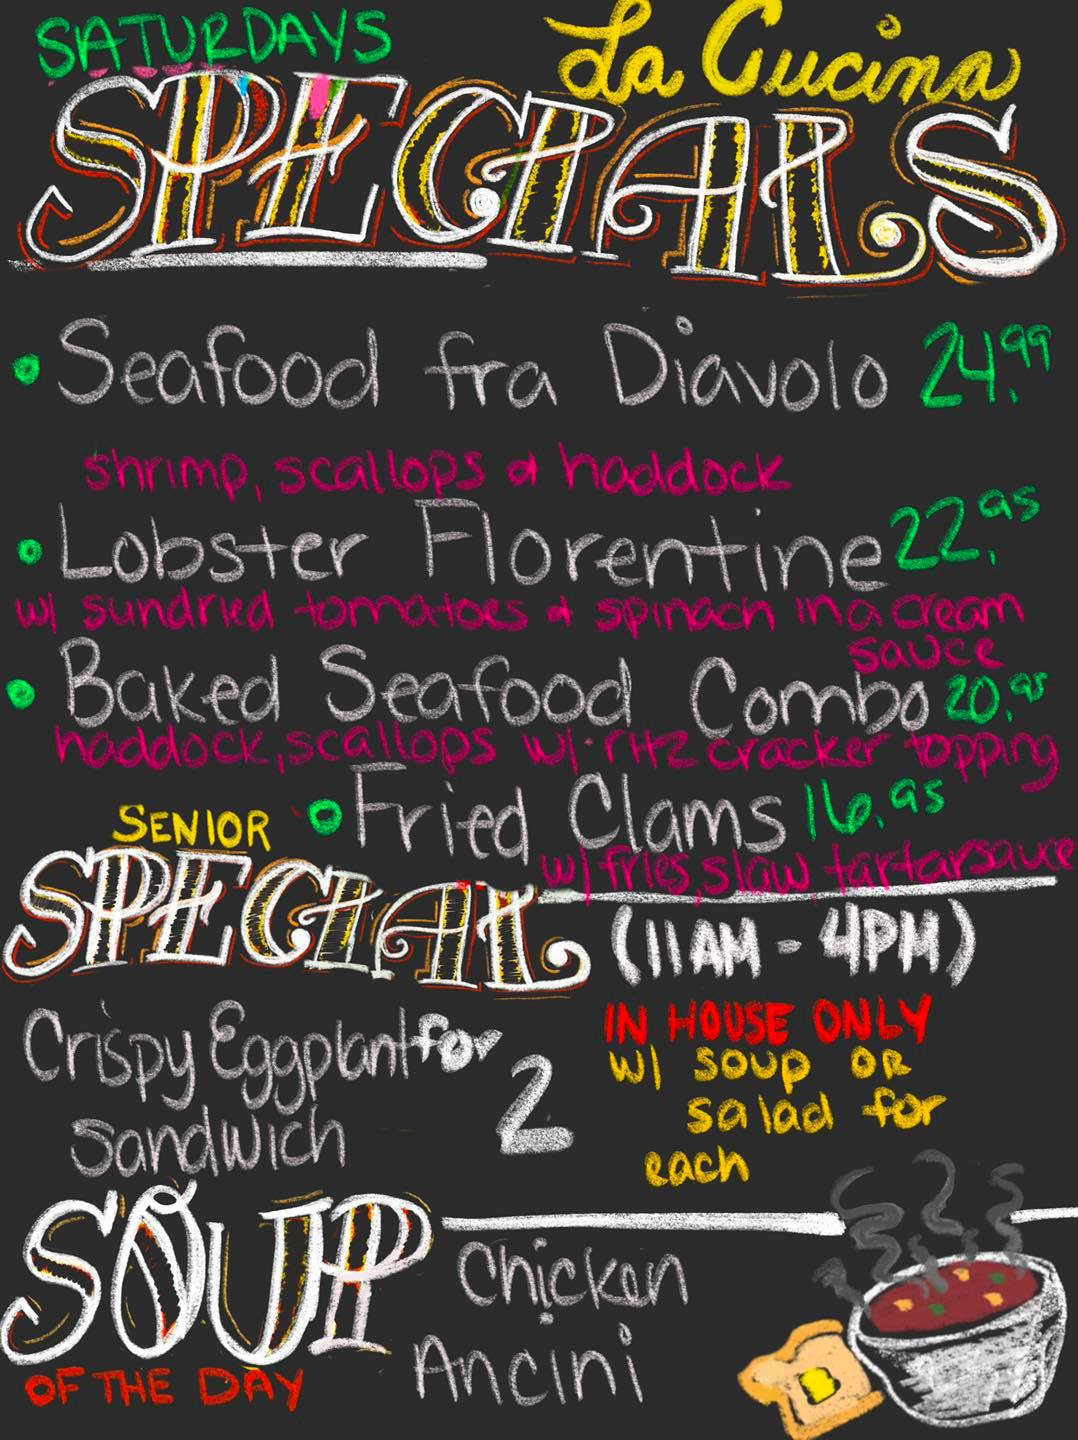 SATURDAYS
La Cucina
SPECIALS
• Seafood fra Diavolo 24.99
shrimp, scallops & haddock
• Lobster Florentine 22.95
w/ sundried tomatoes & spinach in a cream
sauce
• Baked Seafood Combo 20.95
haddock, scallops w/ ritz cracker topping
• Fried Clams 16.95
w/ fries, slaw tartar sauce
SENIOR
SPECIAL
(11AM - 4PM)
Crispy Eggplant for 2
sandwich
IN HOUSE ONLY
w/ soup OR
salad for
each
SOUP
OF THE DAY
Chicken
Ancini